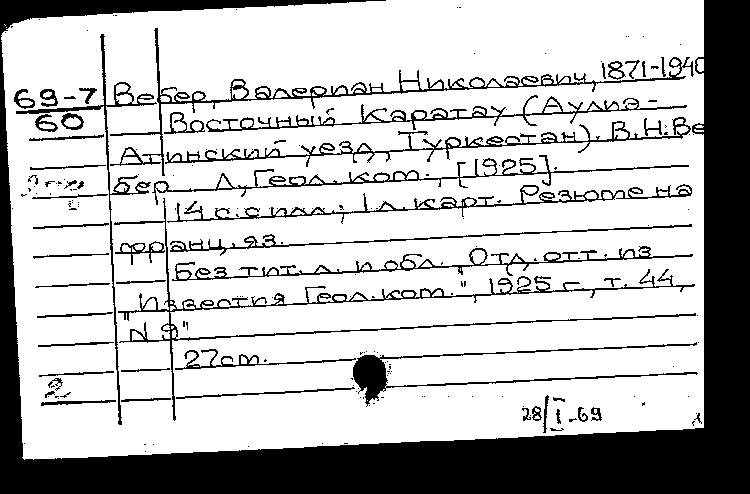 69-7
60
Вебер, Валериан Николаевич, 1871-1940
Восточный Каратау (Аулиэ-
Атинский уезд, Туркестан). В.Н.Ве
бер. Л., Геол. ком., [1925].
14 с. с илл.; 1 л. карт. Резюме на
франц. яз.
Без тит. л. и обл. "Отд. отт. из
"Известия Геол. ком.", 1925 г., т. 44,
"N 9"
27 см.
2
28/I-69